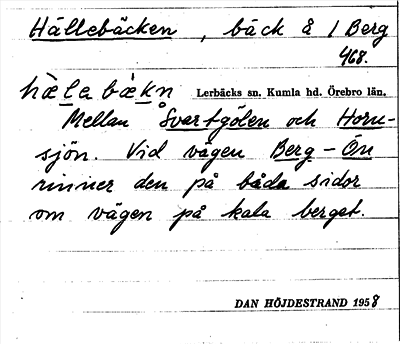 Hällebäcken, bäck å 1 Berg
468.
hæ̀labæ̀kn̥ Lerbäcks sn. Kumla hd. Örebro län.
Mellan Svartgölen och Horn-
sjön. Vid vägen Berg – Ön
rinner den på båda sidor
om vägen på kala berget.
DAN HÖJDESTRAND 1958